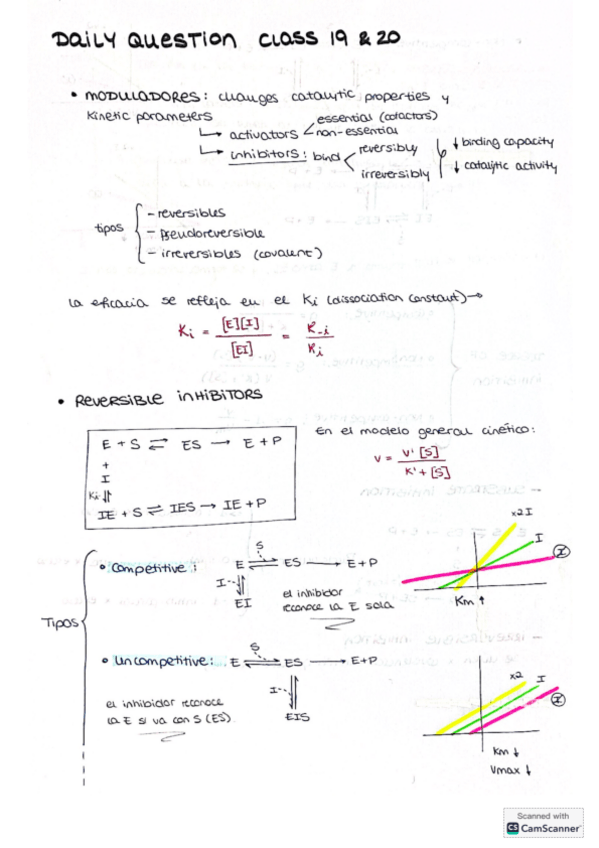 DAILY QUESTION CLASS 19 & 20
• MODULADORES: changes catalytic properties y
Kinetic parameters
↳ activators < essential (cofactors)
non-essential
↳ inhibitors: bind < reversibly
irreversibly
↓ binding capacity
↓ catalytic activity
tipos { - reversibles
- Pseudoreversible
- irreversibles (covalent)
la eficacia se refleja en el Ki (dissociation constant) →
Ki = [E][I] / [EI] = K-i / Ki
• REVERSIBLE INHIBITORS
E + S ⇌ ES → E + P
+
I
Ki ⇅
IE + S ⇌ IES → IE + P
En el modelo general cinético:
V = V' [S] / K' + [S]
Tipos
• Competitive: E ⇌ ES → E + P
S
I
EI
el inhibidor
reconoce la E sola
x2 I
I
I
Km ↑
• Uncompetitive: E ⇌ ES → E+P
S
I
EIS
el inhibidor reconoce
la E si va con S (ES)
x2
I
I
Km ↓
Vmax ↓
Scanned with
CS CamScanner